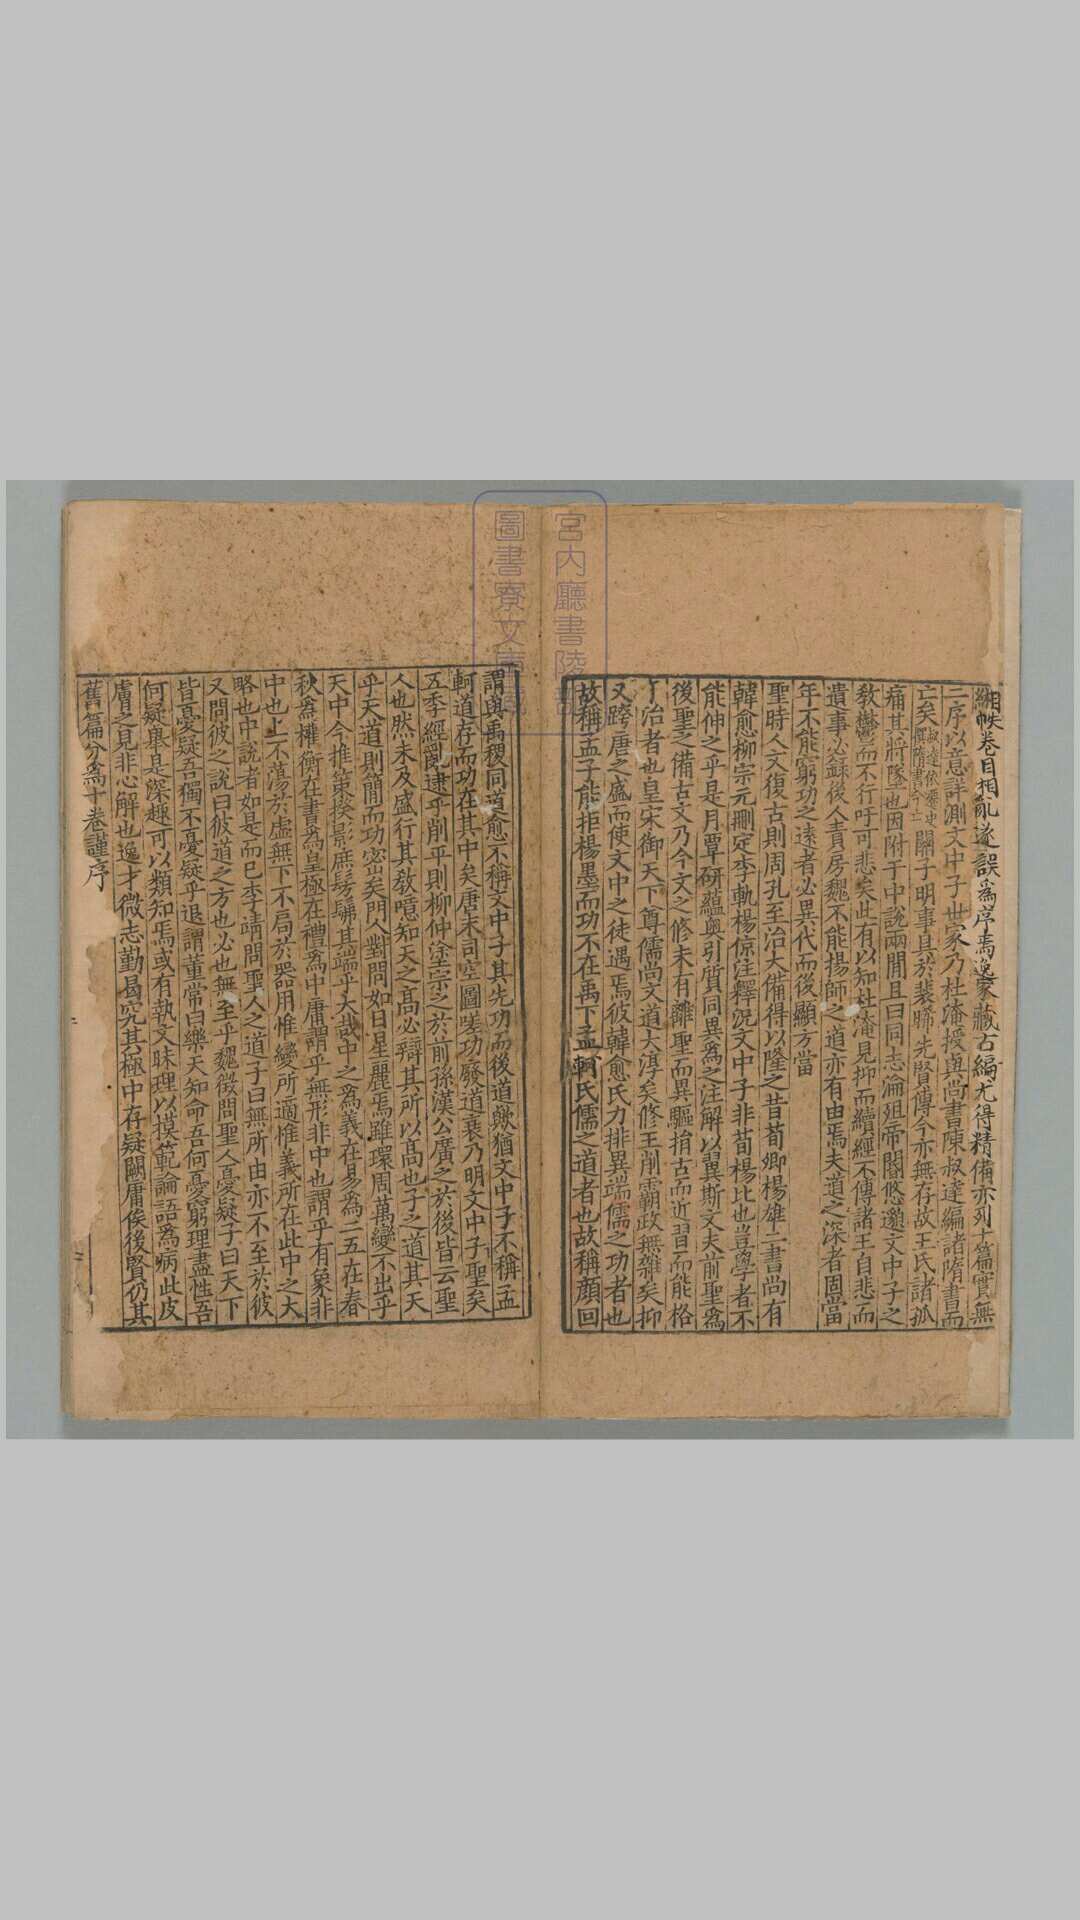 緗帙卷目相亂遂誤爲序焉逸家藏古編尤得精備亦列十篇實無
二序以意詳測文中子世家乃杜淹授與尚書陳叔達編諸隋書而
亡矣叔達依遷史撰隋書今亡關子明事具於裴晞先賢傳今亦無存故王氏諸孤
痛其將墜也因附于中說兩間且曰同志淪殂帝閽悠邈文中子之
教鬱而不行吁可悲矣此有以知杜淹見抑而續經不傳諸王自悲而
遺事必錄後人責房魏不能揚師之道亦有由焉夫道之深者固當
年不能窮功之遠者必異代而後顯方當
聖時人文復古則周孔至治大備得以隆之昔荀卿楊雄二書尚有
韓愈柳宗元刪定李軌楊倞注釋況文中子非荀楊比也豈學者不
能伸之乎是月覃研蘊奧引質同異爲之注解以翼斯文夫前聖爲
後聖之備古文乃今文之修未有離聖而異驅捐古而近習而能格
于治者也皇宋御天下尊儒尚文道大淳矣修王削霸政無雜矣抑
又跨唐之盛而使文中之徒遇焉彼韓愈氏力排異端儒之功者也
故稱孟子能拒楊墨而功不在禹下孟軻氏儒之道者也故稱顏回
謂與禹稷同道愈不稱文中子其先功而後道歟猶文中子不稱孟
軻道存而功在其中矣唐末司空圖嗟功廢道衰乃明文中子聖矣
五季經亂逮乎削平則柳仲塗宗之於前孫漢公廣之於後皆云聖
人也然未及盛行其教噫知天之高必辯其所以高也子之道其天
乎天道則簡而功密矣門人對問如日星麗焉雖環周萬變不出乎
天中今推策揆影庶髣髴其端乎大哉中之爲義在易爲二五在春
秋爲權衡在書爲皇極在禮爲中庸謂乎無形非中也謂乎有象非
中也上不蕩於虛無下不局於器用惟變所適惟義所在此中之大
略也中說者如是而已李靖問聖人之道子曰無所由亦不至於彼
又問彼之說曰彼道之方也必也無至乎魏徵問聖人憂疑子曰天下
皆憂疑吾獨不憂疑乎退謂董常曰樂天知命吾何憂窮理盡性吾
何疑舉是深趣可以類知焉或有執文昧理以摸範論語爲病此皮
膚之見非心解也逸才微志勤曷究其極中存疑闕庸俟後賢仍其
舊篇分爲十卷謹序
宮内廳書陵部
圖書寮文庫藏